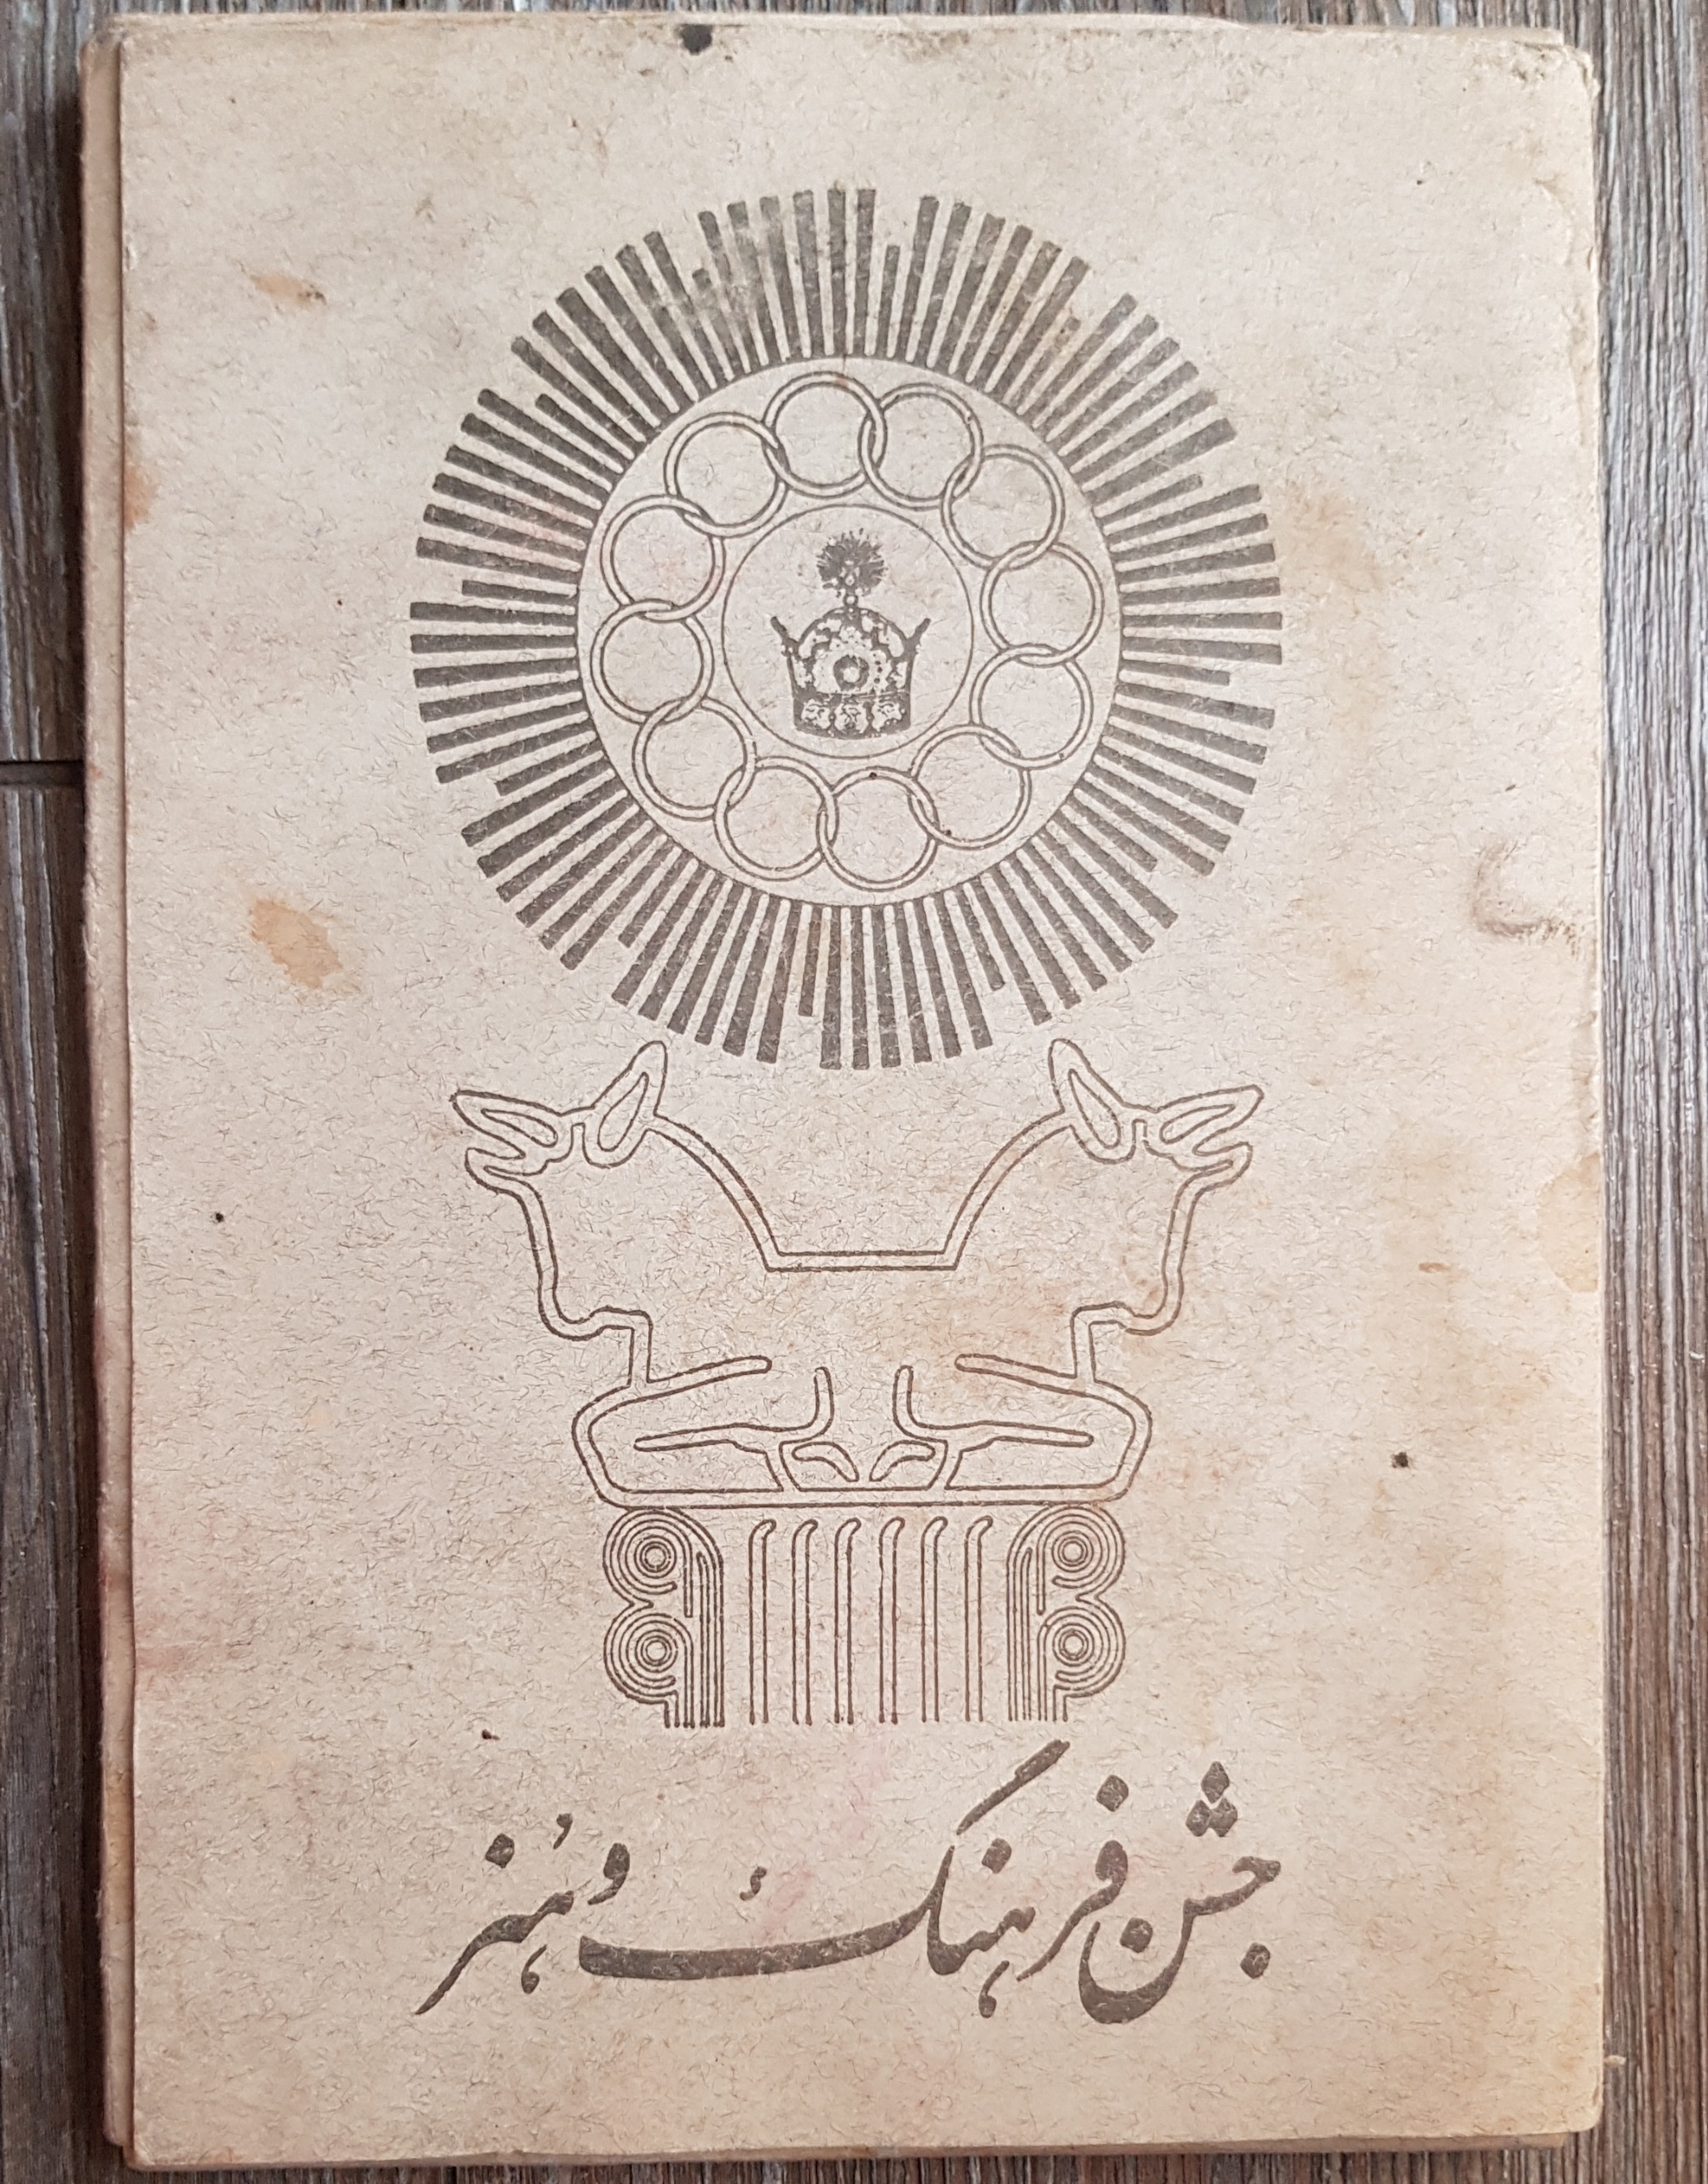 جشن فرهنگ و هنر